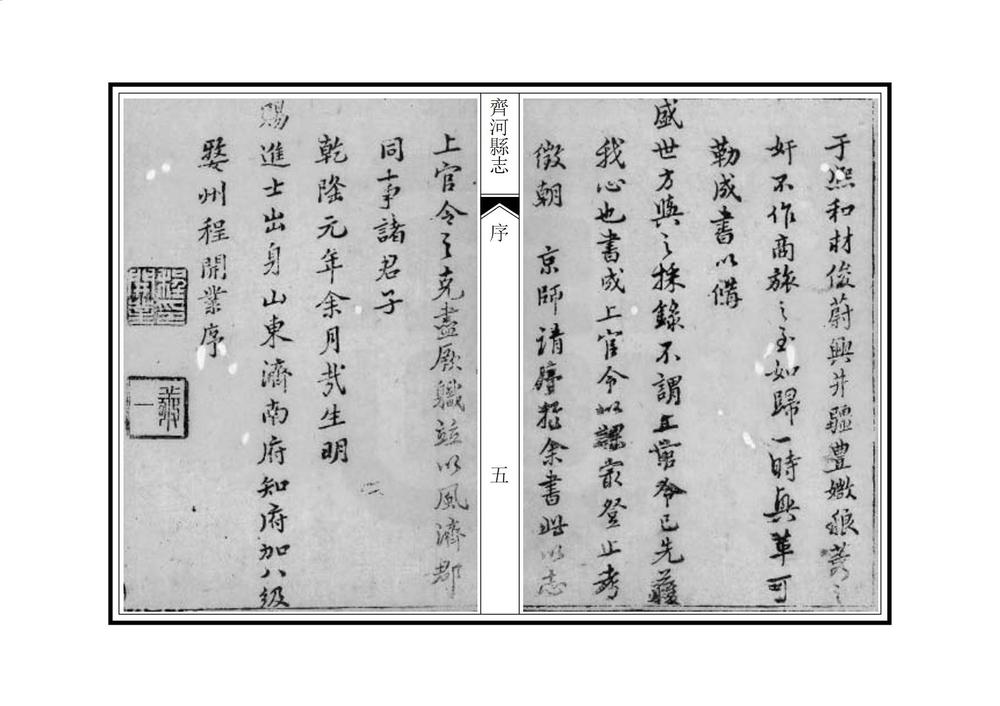 于熙和材俊蔚興井疆豊媺稂莠之
奸不作商旅之至如歸一時興革可
勒成書以備
盛世方輿之採錄不謂直當希已先獲
我心也書成上官令以課最登上考
徵朝 京師請序於余書此以志
齊河縣志
序
五
上官令之克盡厥職並以風濟郡
同事諸君子
乾隆元年余月哉生明
賜進士出身山東濟南府知府加八級
婺州程開業序